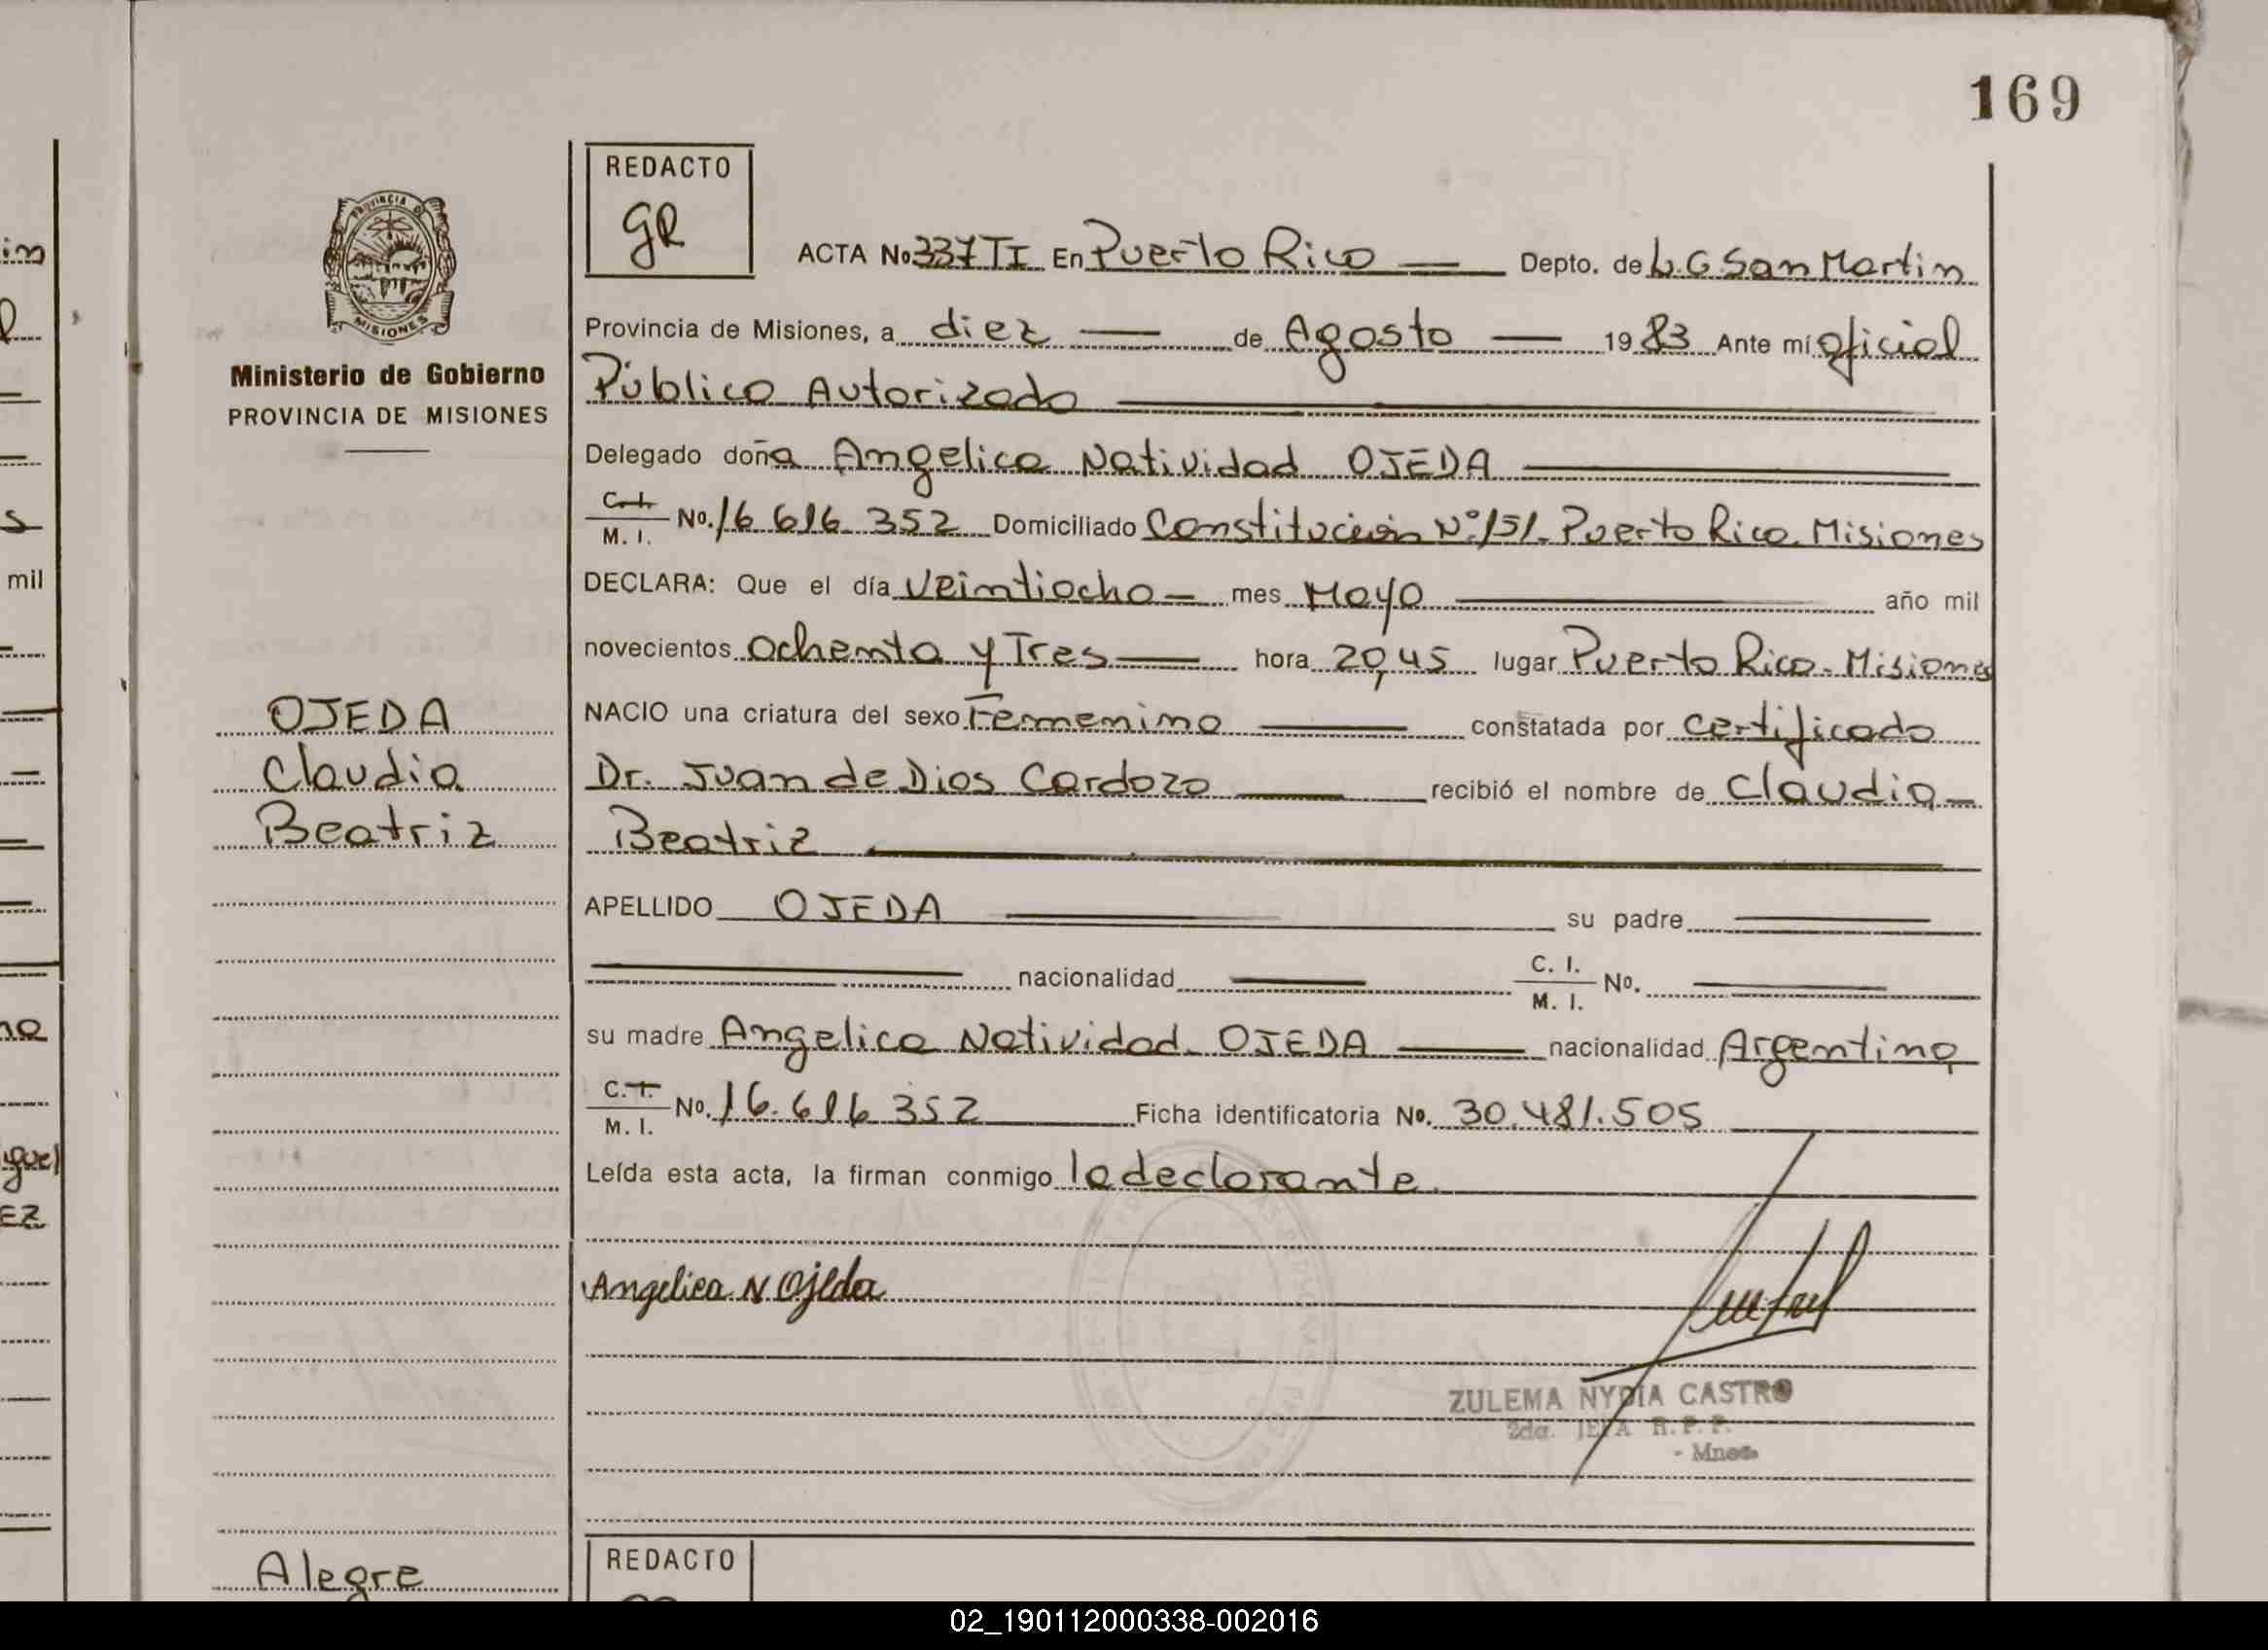 169
REDACTO
gR
PROVINCIA DE
MISIONES
Ministerio de Gobierno
PROVINCIA DE MISIONES
ACTA No 337 TI En Puerto Rico — Depto. de L. G San Martin
Provincia de Misiones, a diez — de Agosto — 19 83 Ante mí oficial
Público Autorizado
Delegado doña Angelica Natividad OJEDA
C.I. M. I. No. 16 616 352 Domiciliado Constitución Nº 151. Puerto Rico. Misiones
DECLARA: Que el día veintiocho — mes Mayo — año mil
novecientos ochenta y Tres — hora 20,45 lugar Puerto Rico - Misiones
NACIO una criatura del sexo Femenino — constatada por certificado
Dr. Juan de Dios Cardozo — recibió el nombre de Claudia —
Beatriz
APELLIDO OJEDA — su padre —
— nacionalidad — C. I. M. I. No. —
su madre Angelica Natividad OJEDA — nacionalidad Argentina
C.I. M. I. No. 16.616 352 Ficha identificatoria No. 30.481.505
Leída esta acta, la firman conmigo la declarante.
Angelica N Ojeda
ZULEMA NYDIA CASTRO
2da. JEFA R.P.P.
- Mnes
OJEDA
Claudia
Beatriz
Alegre
REDACTO
in
mil
iguel
EZ
02_190112000338-002016